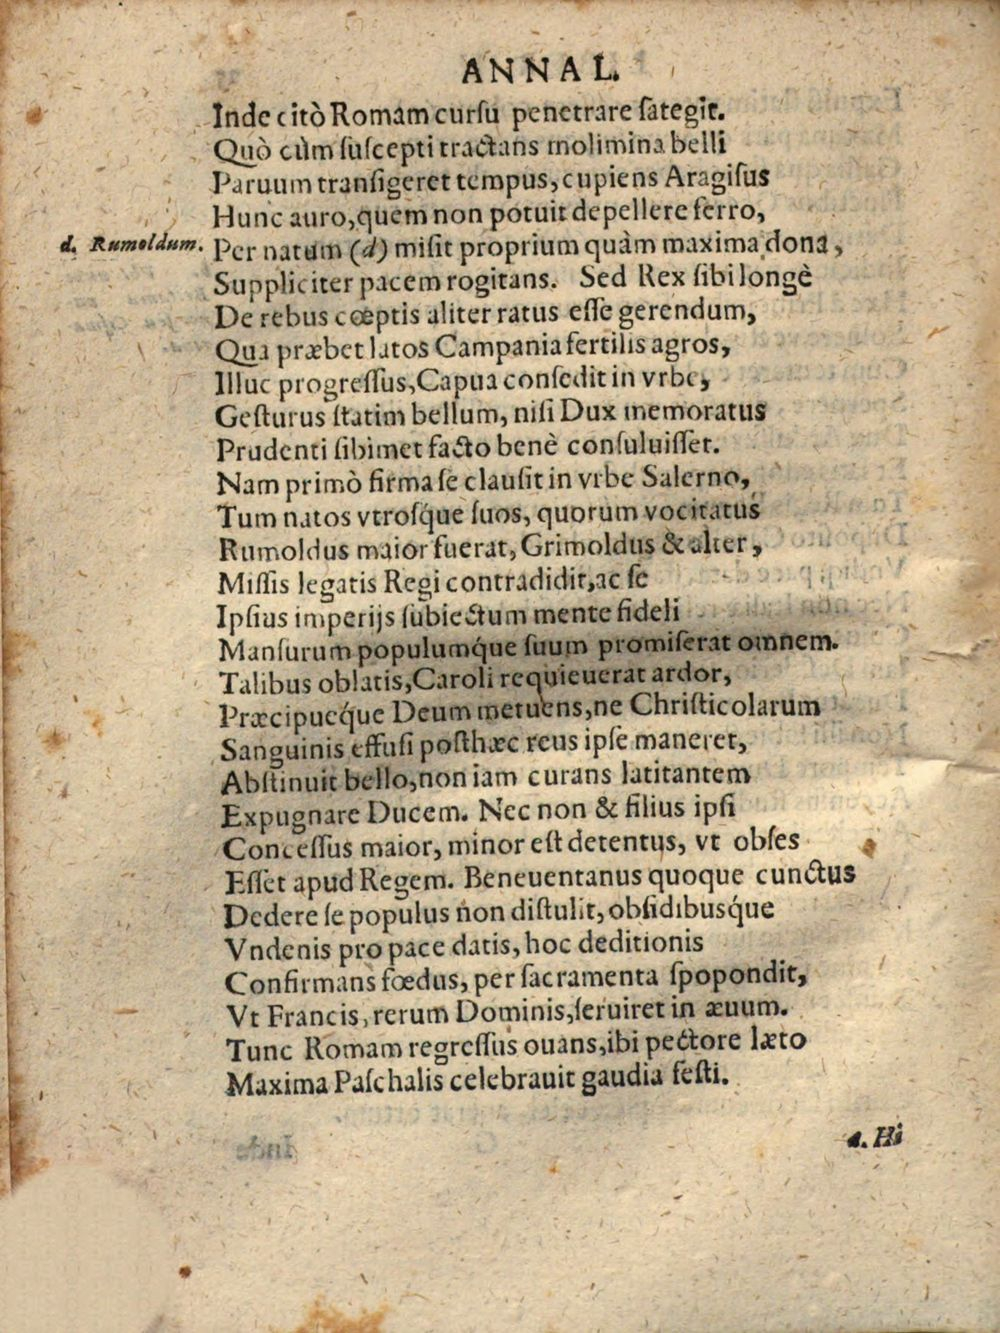 ANNAL.
Inde citò Romam cursu penetrare sategit.
Quò cùm suscepti tractans molimina belli
Paruum transigeret tempus, cupiens Aragisus
Hunc auro, quem non potuit depellere ferro,
d. Rumoldum. Per natum (d) misit proprium quàm maxima dona,
Suppliciter pacem rogitans. Sed Rex sibi longè
De rebus cœptis aliter ratus esse gerendum,
Qua præbet latos Campania fertilis agros,
Illuc progressus, Capua consedit in vrbe,
Gesturus statim bellum, nisi Dux memoratus
Prudenti sibimet facto benè consuluisset.
Nam primò firma se clausit in vrbe Salerno,
Tum natos vtrosq́ue suos, quorum vocitatus
Rumoldus maior fuerat, Grimoldus & alter,
Missis legatis Regi contradidit, ac se
Ipsius imperijs subiectum mente fideli
Mansurum populumq́ue suum promiserat omnem.
Talibus oblatis, Caroli requieuerat ardor,
Præcipueq́ue Deum metuens, ne Christicolarum
Sanguinis effusi posthæc reus ipse maneret,
Abstinuit bello, non iam curans latitantem
Expugnare Ducem. Nec non & filius ipsi
Concessus maior, minor est detentus, vt obses
Esset apud Regem. Beneuentanus quoque cunctus
Dedere se populus non distulit, obsidibusq́ue
Vndenis pro pace datis, hoc deditionis
Confirmans fœdus, per sacramenta spopondit,
Vt Francis, rerum Dominis, seruiret in æuum.
Tunc Romam regressus ouans, ibi pectore læto
Maxima Paschalis celebrauit gaudia festi.
a. Hi